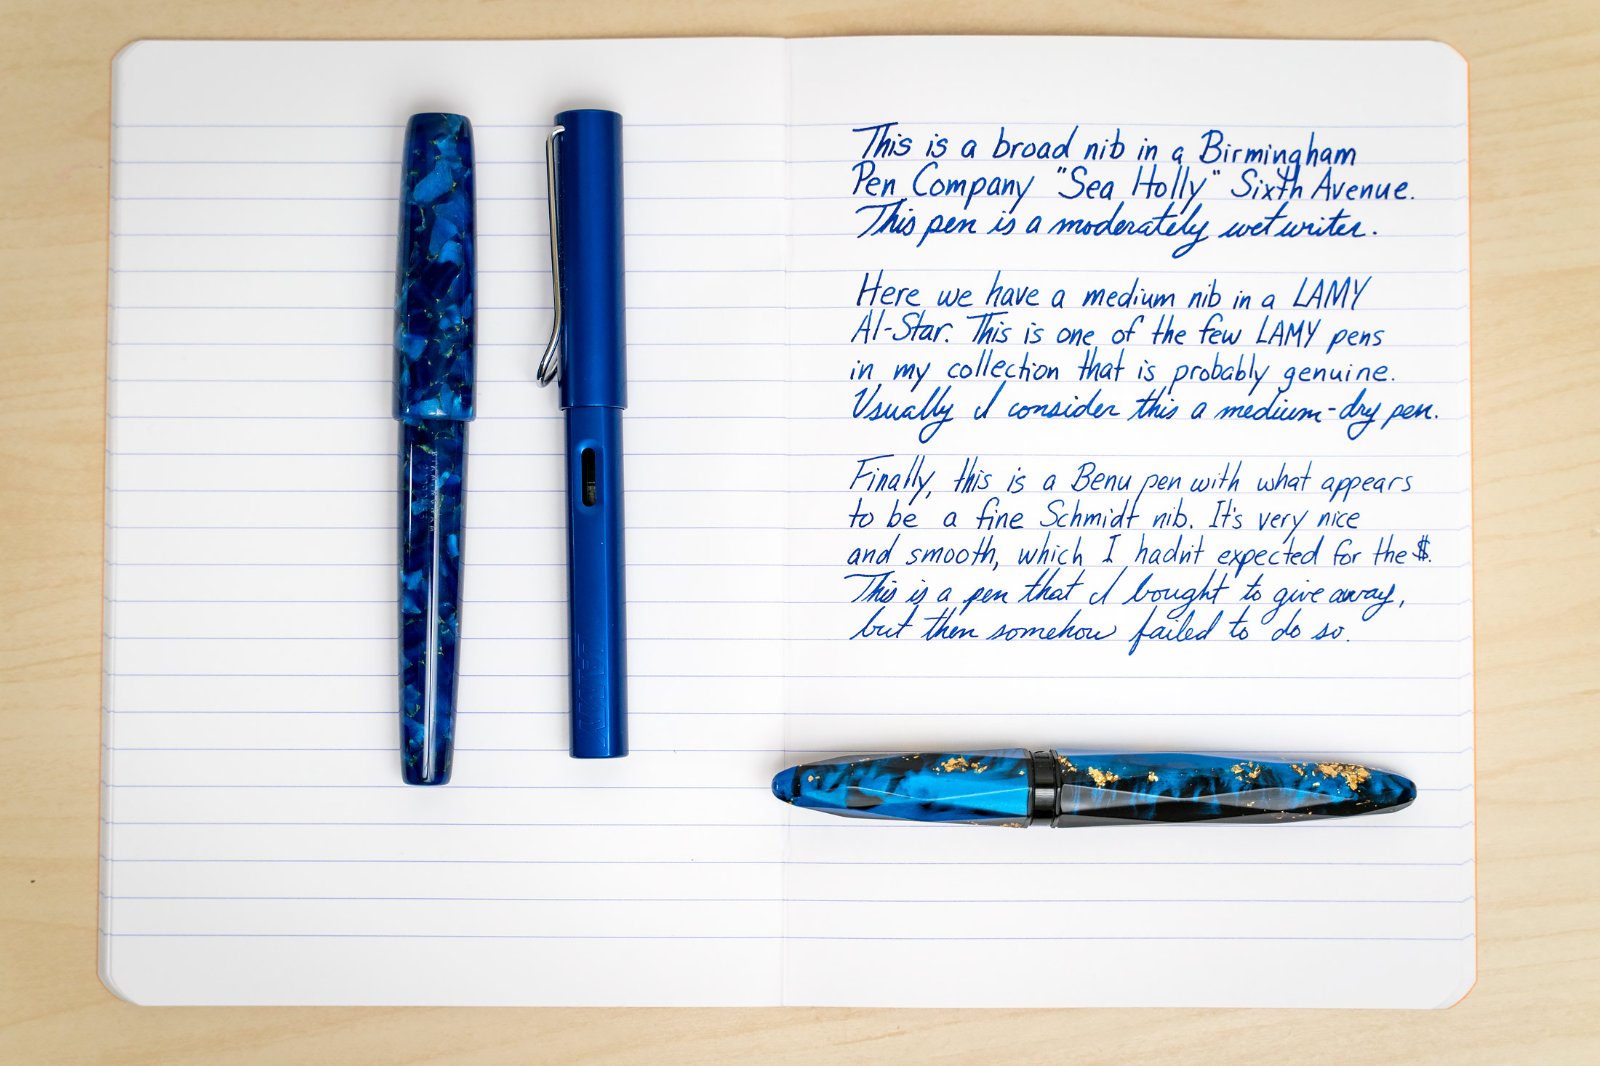 This is a broad nib in a Birmingham
Pen Company "Sea Holly" Sixth Avenue.
This pen is a moderately wet writer.
Here we have a medium nib in a LAMY
Al-Star. This is one of the few LAMY pens
in my collection that is probably genuine.
Usually I consider this a medium-dry pen.
Finally, this is a Benu pen with what appears
to be a fine Schmidt nib. It's very nice
and smooth, which I hadn't expected for the $.
This is a pen that I bought to give away,
but then somehow failed to do so.
LAMY